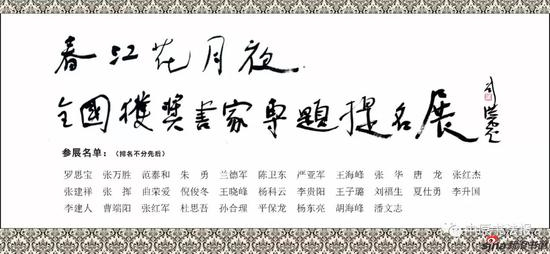 春江花月夜
全國獲獎書家專題提名展
参展名单：（排名不分先后）
罗思宝 张万胜 范泰和 朱勇 兰德军 陈卫东 严亚军 王海峰 张华 唐龙 张红杰
张建祥 张挥 曲荣爱 倪俊冬 王晓峰 杨科云 李贵阳 王子璐 刘福生 夏仕勇 李升国
李建人 曹端阳 张红军 杜思吾 孙合理 平保龙 杨东亮 胡海峰 潘文志
sina